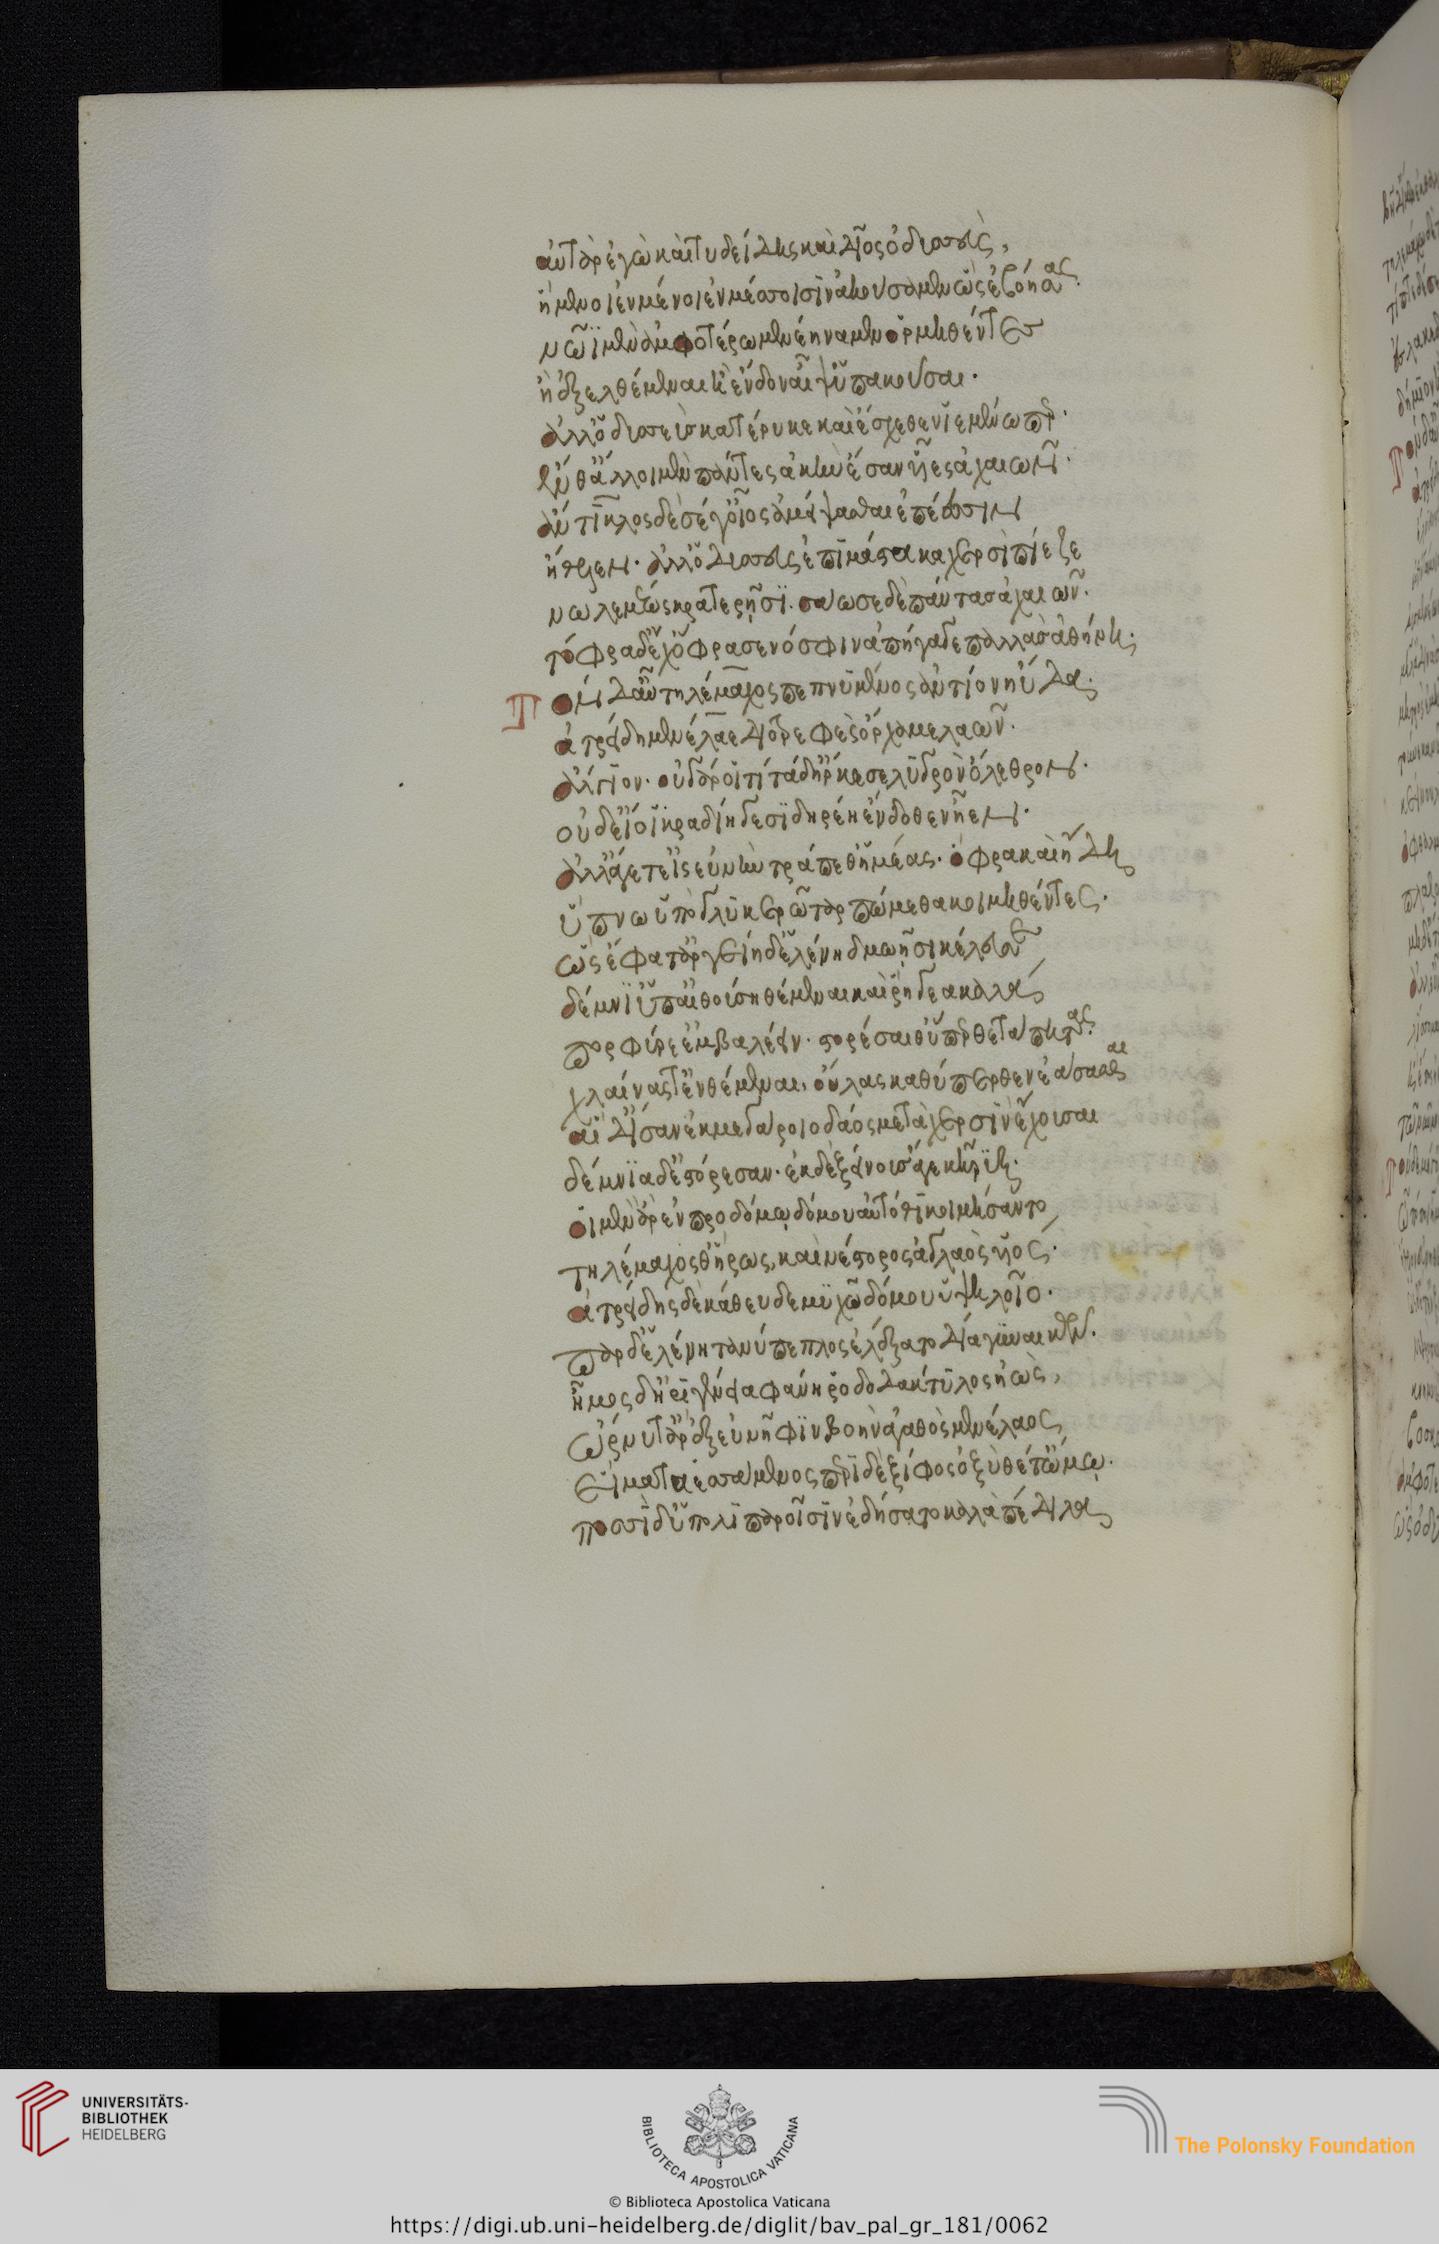 αὐτὰρ ἐγὼ καὶ τυδείδης καὶ δῖος ὀδυσσεὺς,
ἥμενοι ἐν μέσσοισιν ἀκούσαμεν ὡς ἐβόησας.
νῶϊ μὲν ἀμφοτέρω μενεήναμεν ὁρμηθέντες
ἢ ἐξελθέμεναι ἢ ἔνδον αἶψ' ὑπακοῦσαι.
ἀλλ' ὀδυσεὺς κατέρυκε καὶ ἔσχεθεν ἱεμένω περ.
ἔνθ' ἄλλοι μὲν πάντες ἀκὴν ἔσαν υἷες ἀχαιῶν.
ἄντικλος δὲ σέ γ' οἶος ἀμείψασθαι ἐπέεσσιν
ἤθελεν. ἀλλ' ὀδυσσεὺς ἐπὶ μάστακα χερσὶ πίεζε
νωλεμέως κρατερῇσι. σάωσε δὲ πάντας ἀχαιούς.
τόφρα δ' ἔχ' ὄφρα σε νόσφιν ἀπήγαγε παλλὰς ἀθήνη.
Τὸν δ' αὖ τηλέμαχος πεπνυμένος ἀντίον ηὔδα.
ἀτρείδη μενέλαε διοτρεφὲς ὄρχαμε λαῶν.
ἄλγιον. οὐ γάρ οἵ τι τάδ' ἤρκεσε λυγρὸν ὄλεθρον.
οὐδ' εἴ οἱ κραδίη γε σιδηρέη ἔνδοθεν ἦεν.
ἀλλ' ἄγετ' εἰς εὐνὴν τράπεθ' ἡμέας. ὄφρα καὶ ἤδη
ὕπνω ὕπο γλυκερῶ ταρπώμεθα κοιμηθέντες.
ὣς ἔφατ' ἀργείη δ' ἑλένη δμωῇσι κέλευσε
δέμνι' ὑπ' αἰθούσῃ θέμεναι καὶ ῥήγεα καλὰ
πορφύρε' ἐμβαλέειν. στορέσαι θ' ὕπερθε τάπητας.
χλαίνας τ' ἐνθέμεναι, οὔλας καθύπερθεν ἕσασθαι
αἱ δ' ἴσαν ἐκ μεγάροιο δάος μετὰ χερσὶν ἔχουσαι
δέμνια δ' ἐστόρεσαν. ἐκ δὲ ξείνους ἄγε κῆρυξ.
οἱ μὲν ἄρ' ἐν προδόμῳ δόμου αὐτόθι κοιμήσαντο,
τηλέμαχος θ' ἥρως, καὶ νέστορος ἀγλαὸς υἱός.
ἀτρείδης δὲ κάθευδε μυχῶ δόμου ὑψηλοῖο.
πὰρ δ' ἑλένη τανύπεπλος ἐλέξατο δῖα γυναικῶν.
ἦμος δ' ἠριγένεια φάνη ῥοδοδάκτυλος ἠὼς,
ὤρνυτ' ἄρ' ἐξ εὐνῆφιν βοὴν ἀγαθὸς μενέλαος
εἵματα ἑσσάμενος περὶ δὲ ξίφος ὀξὺ θέτ' ὤμῳ.
ποσσὶ δ' ὑπὸ λιπαροῖσιν ἐδήσατο καλὰ πέδιλα
UNIVERSITÄTS-
BIBLIOTHEK
HEIDELBERG
BIBLIOTECA APOSTOLICA VATICANA
The Polonsky Foundation
© Biblioteca Apostolica Vaticana
https://digi.ub.uni-heidelberg.de/diglit/bav_pal_gr_181/0062